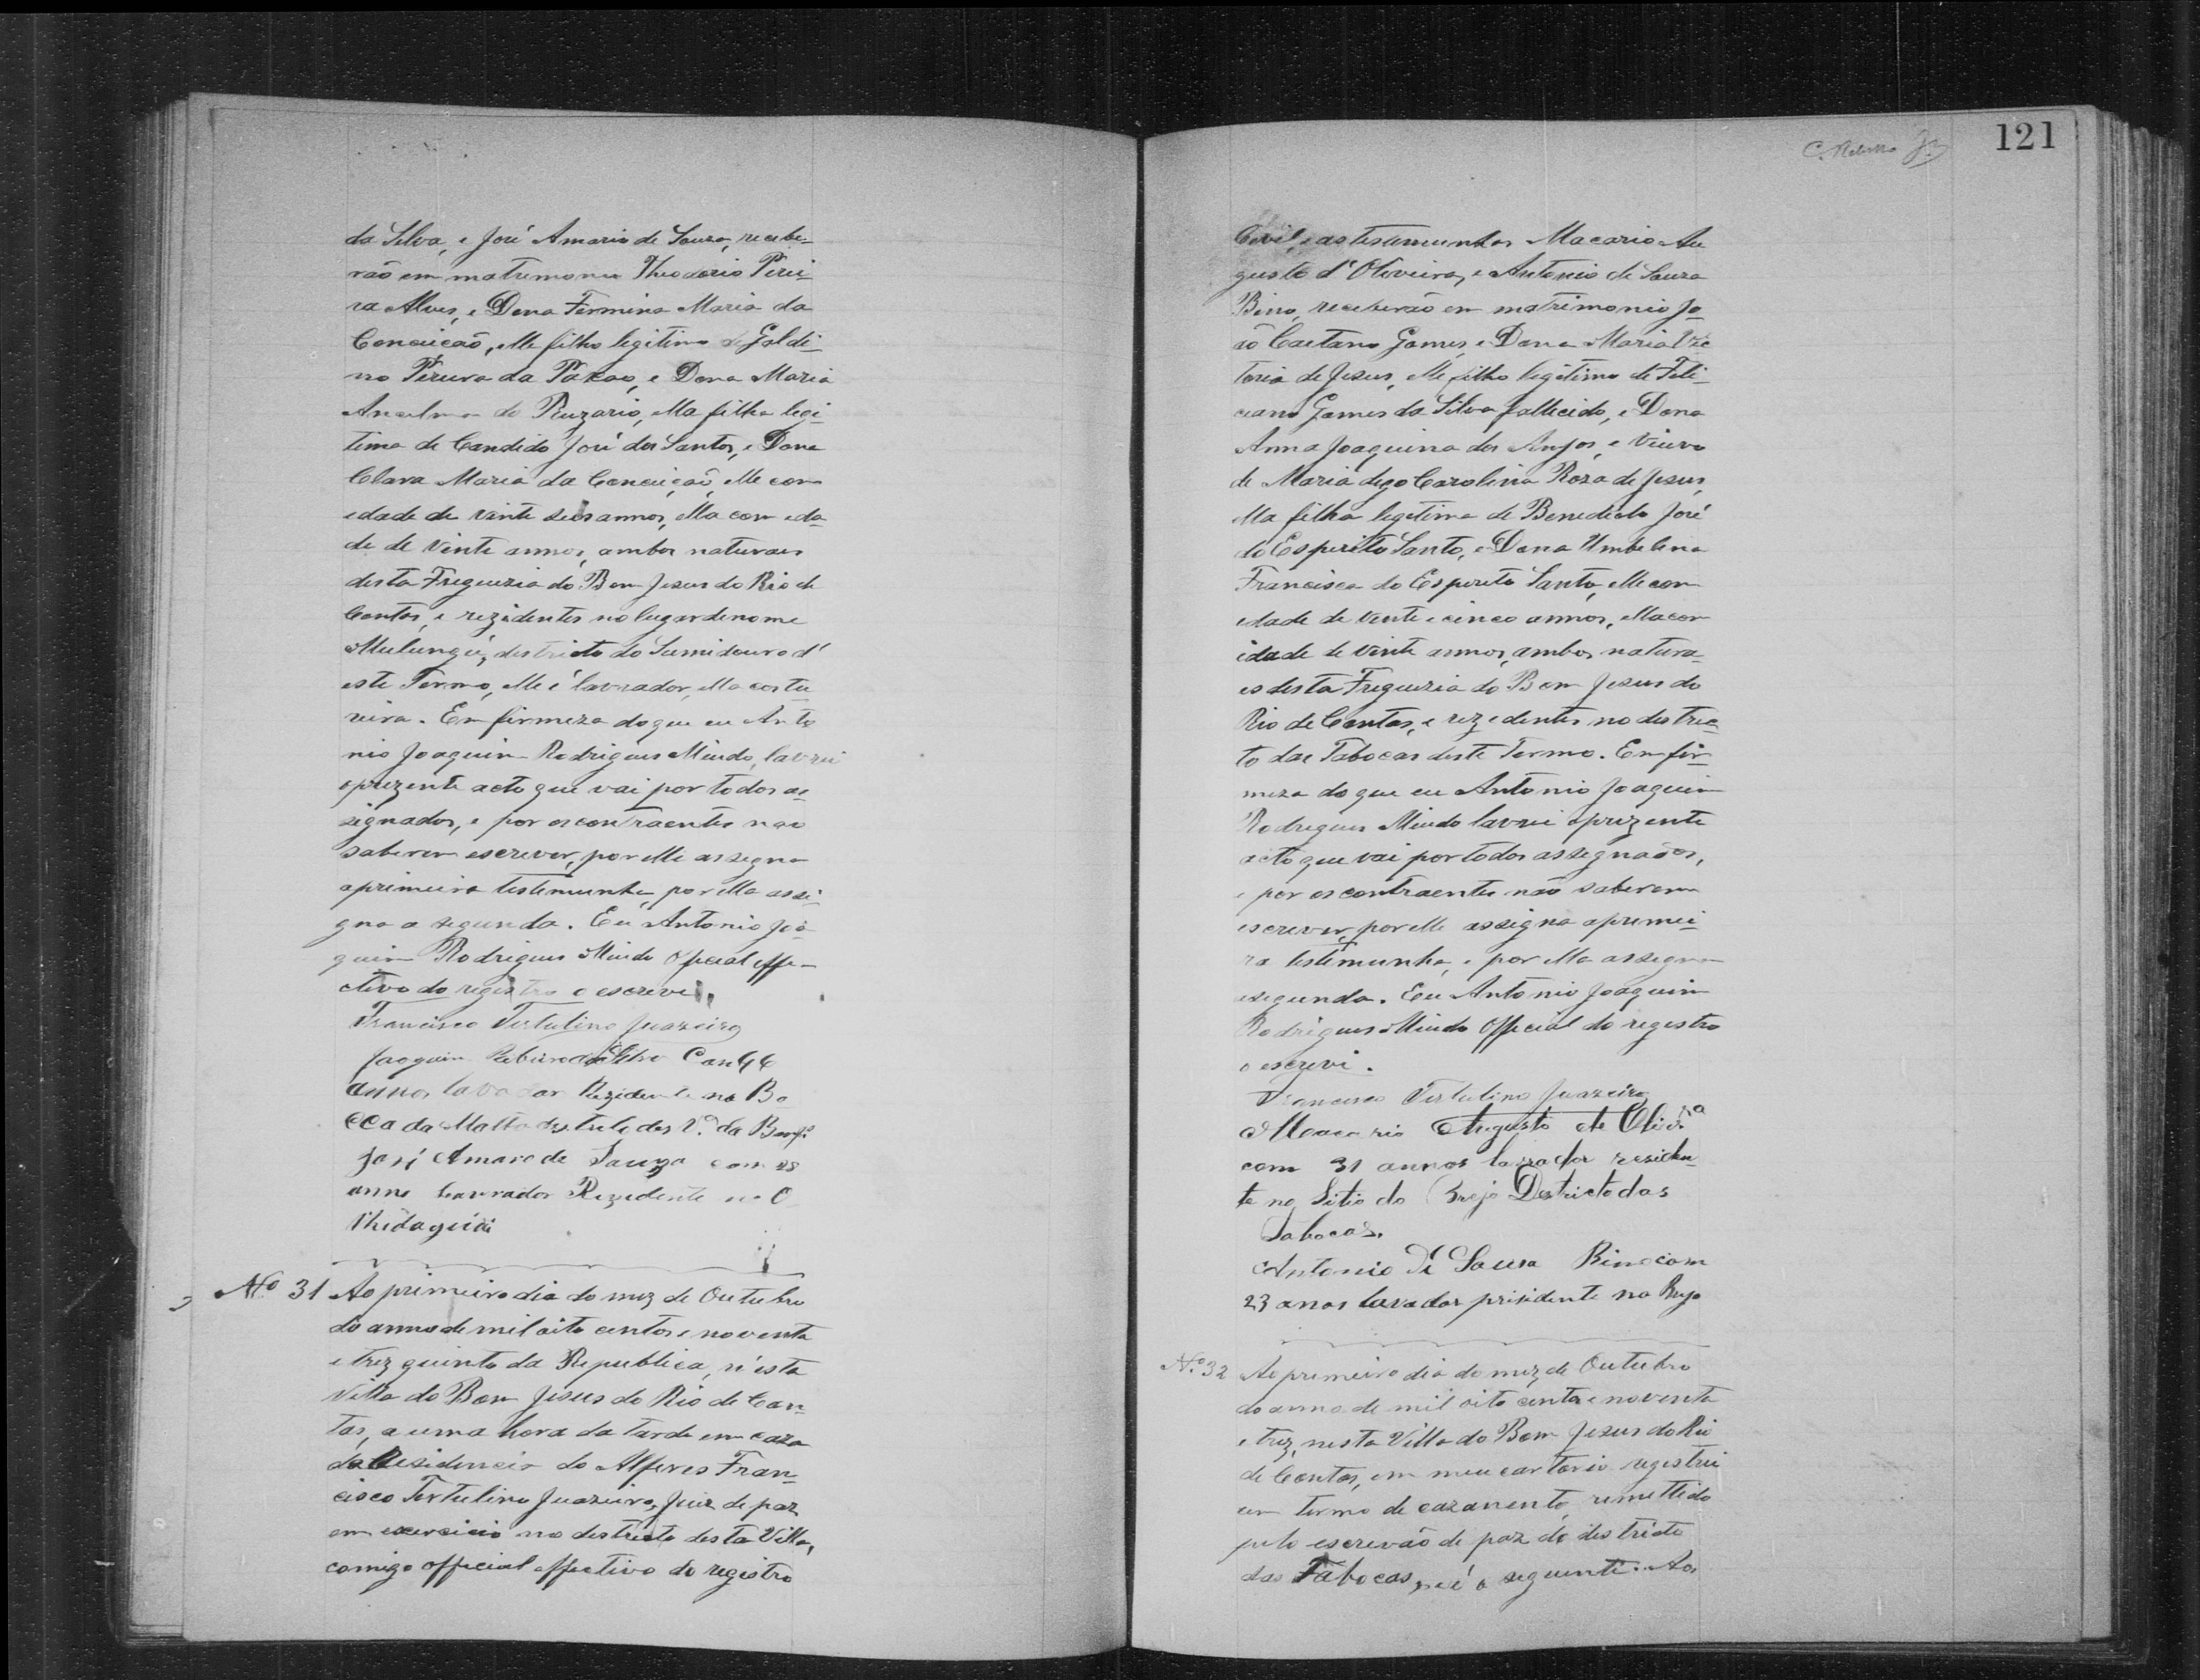 da Silva, e José Amario de Souza, recebe-
rão em matrimonio Theodorio Perei-
ra Alves, e Dona Fermina Maria da
Conceição, elle filho legitimo de Galdi-
no Pereira da Paixão, e Dona Maria
Anselma do Ruzario, ella filha legi-
tima de Candido José dos Santos, e Dona
Clara Maria da Conceição, elle com
edade de vinte seis annos, ella com eda-
de de Vinte annos, ambos naturaes
desta Freguezia do Bom Jesus do Rio de
Contas, e rezidentes no lugar denome
Mulungú, destricto do Sumidouro d'
este Termo, elle é lavrador, ella costu
reira. Em firmeza do que eu Anto
nio Joaquim Rodrigues Mindo, lavrei
o prezente acto que vai por todos as-
signados, e por os contraentes não
saberem escrever, por elle assigna
a primeira testemunha, por ella assi-
gna a segunda. Eu Antonio Joa-
quim Rodrigues Mindo Official effe-
ctivo do registro o escrevei.
Francisco Tertulino Juazeiro
Joaquim Ribeiro da Silva Com 46
annos lavador Rezidente na Bo
cca da Matta destrito des V.ª da Bom J.s
José Amaro de Souza com 28
anno lavrador Rezidente no O

Nº 31 Ao primeiro dia do mez de Outubro
do anno de mil oito centos e noventa
e trez quinto da Republica, n'esta
Villa do Bom Jesus do Rio de Con-
tas, a uma hora da tarde em caza
da Residencia do Alferes Fran-
cisco Tertulino Juazeiro, Juiz de paz
em exercicio no destricto desta Villa,
comigo official effectivo do registro
C. Rebello Jr.
121
Civil, e as testemunhas Macario Au
gusto d'Oliveira, e Antonio de Souza
Bino, receberão em matrimonio Jo-
ão Caetano Gomes, e Dona Maria Vic
toria de Jesus, elle filho legitimo de Feli-
ciano Gomes da Silva fallecido, e Dona
Anna Joaquina dos Anjos, e Viuvo
de Maria digo Carolina Roza de Jesus,
ella filha legitima de Benedicto José
do Espirito Santo, e Dona Umbelina
Francisca do Espirito Santo, elle com
edade de vinte e cinco annos, ella com
idade de vinte annos, ambos natura-
es desta Freguezia do Bom Jesus do
Rio de Contas, e rezedentes no destric-
to das Tabocas deste Termo. Em fir-
meza do que eu Antonio Joaquim
Rodrigues Mindo lavrei o prezente
acto que vai por todos assegnados,
e por os contraentes não saberem
escrever, por elle assigna a premei-
ra testemunha, e por ella assegna
a segunda. Eu Antonio Joaquim
Rodrigues Mindo Official do registro
o escrevi.
Francisco Tertulino Juazeiro
Macario Augusto de Olivr.ª
com 31 annos lavrador residen-
te no Sitio do Brejo Destricto das
Tabocas.
Antonio di Sousa Bino com
23 anos lavador prisidente no Brejo
Nº 32 Ao primeiro dia do mez de Outubro
do anno de mil oito centos e noventa
e trez, nesta Villa do Bom Jesus do Rio
de Contas, em meu cartorio registrei
um termo de cazamento, remettido
pelo escrevão de paz do destricto
das Tabocas, que é o seguinte: Aos